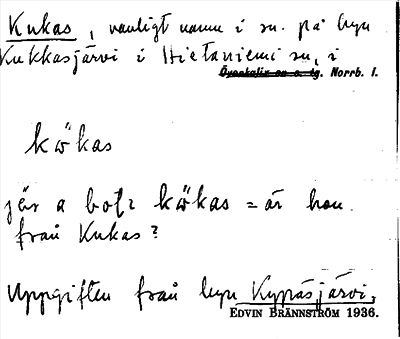 Kukas, vanligt namn i sn. på byn
Kukkasjärvi i Hietaniemi sn, i
Norrb. l.
kökas
jär a bots kökas = är hon
från Kukas?
Uppgiften från byn Kypäsjärvi,
EDVIN BRÄNNSTRÖM 1936.